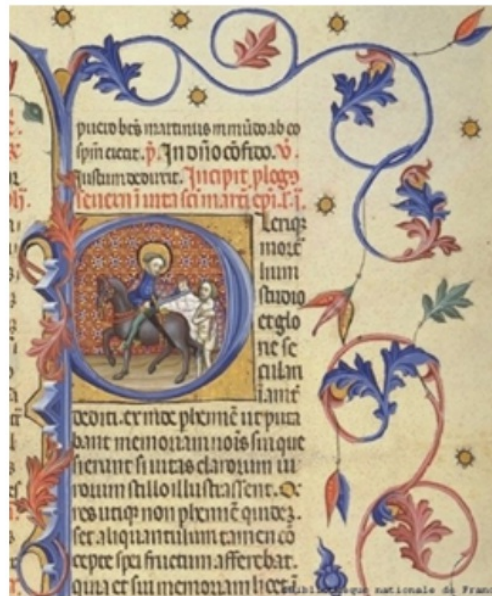 puero bēs martinus in mūdo ab eo
spm
℣. In dño cōfido. ℣.
Incipit plogus
severi in vita sci martini epi.
Plerique
mort
lium
studio
et glo
rie se
culari
dediti. ex inde phennē ut puta
bant memoriam nois sui que
sierunt si vitas clarorum vi
rorum stillo illustrassent.
res utiq; non phennē quidez.
set aliquantulum tamen cō
cepte spei fructum afferebat.
quia et sui memoriam licet ī
Bibliothèque nationale de Franc